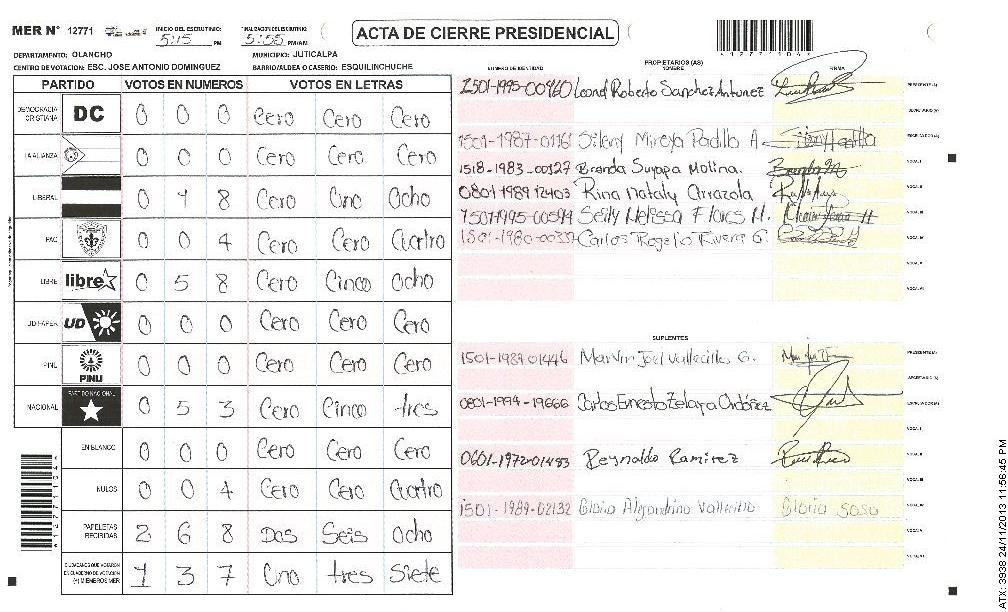 MER N° 12771
INICIO DEL ESCRUTINIO: 5:15 PM
5:55 PM/AM.
ACTA DE CIERRE PRESIDENCIAL
DEPARTAMENTO: OLANCHO
MUNICIPIO: JUTICALPA
CENTRO DE VOTACION: ESC. JOSE ANTONIO DOMINGUEZ
BARRIO/ALDEA O CASERIO: ESQUILINCHUCHE
PARTIDO VOTOS EN NUMEROS VOTOS EN LETRAS
DEMOCRACIA CRISTIANA DC 0 0 0 Cero Cero Cero
LA ALIANZA 0 0 0 Cero Cero Cero
LIBERAL 0 1 8 Cero Uno Ocho
PAC 0 0 4 Cero Cero Cuatro
LIBRE libre 0 5 8 Cero Cinco Ocho
UD-FAPER UD 0 0 0 Cero Cero Cero
PINU PINU 0 0 0 Cero Cero Cero
NACIONAL PARTIDO NACIONAL 0 5 3 Cero Cinco tres
EN BLANCO 0 0 0 Cero Cero Cero
NULOS 0 0 4 Cero Cero Cuatro
PAPELETAS RECIBIDAS 2 6 8 Dos Seis Ocho
CIUDADANOS QUE VOTARON EN CUADERNO DE VOTACION (+) MIEMBROS MER 1 3 7 Uno tres Siete
PROPIETARIOS (AS)
NUMERO DE IDENTIDAD NOMBRE FIRMA
1501-1995-00460 Leonel Roberto Sanchez Antunez PRESIDENTE (A)
SECRETARIO (A)
1501-1987-01161 Sileny Mireya Padilla A ESCRUTADOR (A)
1518-1983-00127 Brenda Suyapa Molina. VOCAL I
0801 1989 12403 Rina Nataly Arrazola VOCAL II
1501-1995-00594 Seily Melissa Flores M. VOCAL III
1501-1980-00337 Carlos Rogelio Rivera G. VOCAL IV
VOCAL V
VOCAL VI
SUPLENTES
1501-1989-01446 Marvin Joel Vallecillo G. PRESIDENTE (A)
SECRETARIO (A)
0801-1994-19666 Carlos Ernesto Zelaya Ordóñez ESCRUTADOR (A)
VOCAL I
0601-1972-01483 Reynaldo Ramirez VOCAL II
VOCAL III
1501-1989-02132 Gloria Alejandrina Vallecillo Gloria Sosa VOCAL IV
VOCAL V
VOCAL VI
ATX: 3938 24/11/2013 11:56:45 PM